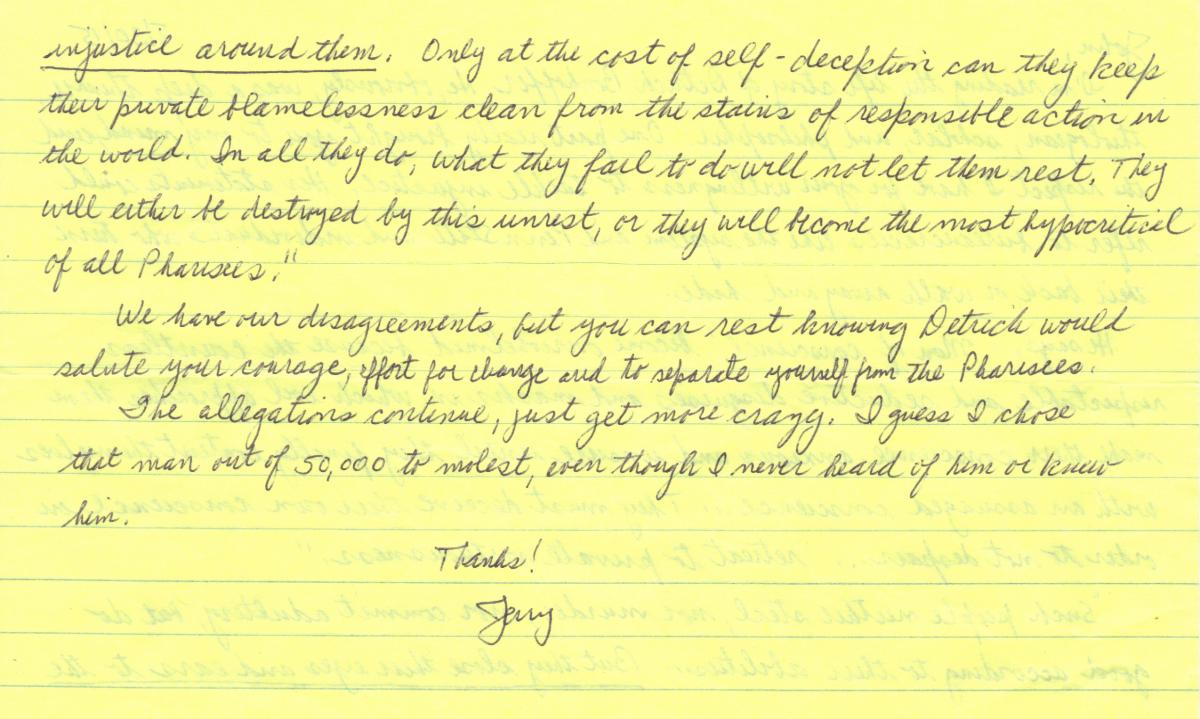 injustice around them. Only at the cost of self-deception can they keep
their private blamelessness clean from the stains of responsible action in
the world. In all they do, what they fail to do will not let them rest. They
will either be destroyed by this unrest, or they will become the most hypocritical
of all Pharisees."
We have our disagreements, but you can rest knowing Detrich would
salute your courage, effort for change and to separate yourself from the Pharisees.
The allegations continue, just get more crazy. I guess I chose
that man out of 50,000 to molest, even though I never heard of him or knew
him.
Thanks!
Jerry